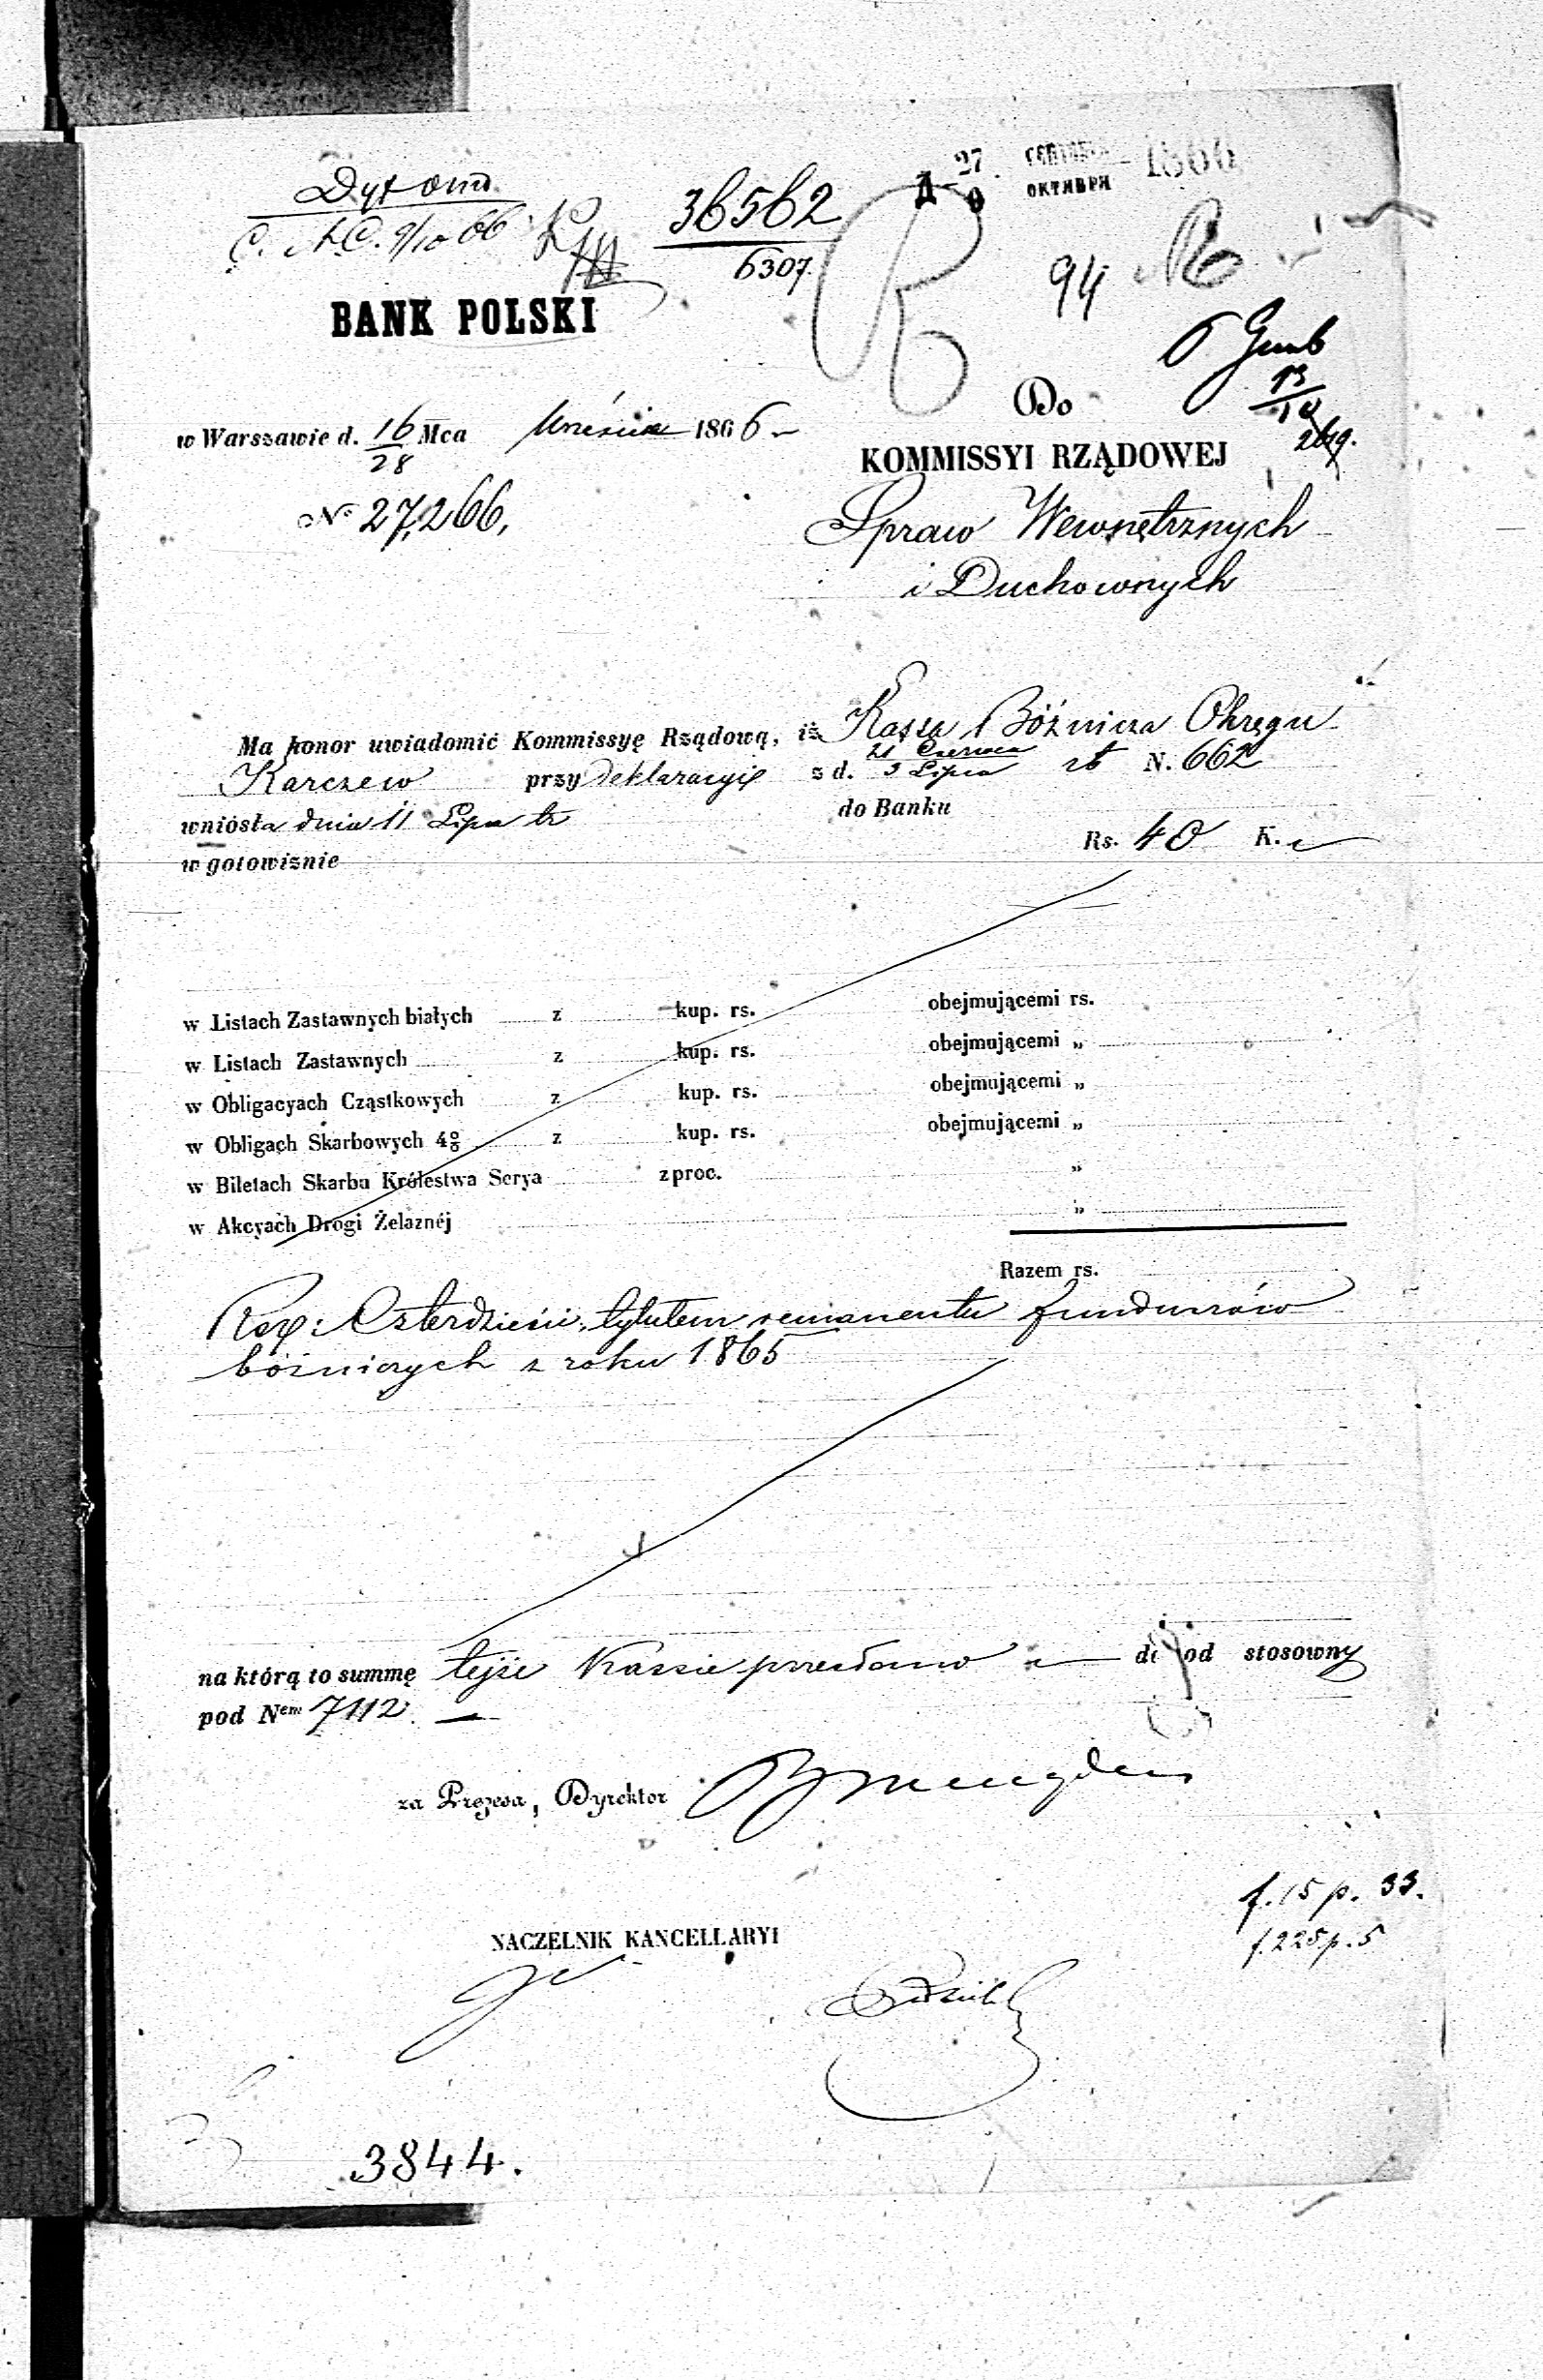 36562
6307
27 СЕНТЯБРЯ 1866
9 ОКТЯБРЯ
94
BANK POLSKI
13
10
Do
w Warszawie d. 16/28 Mca Września 1866
KOMMISSYI RZĄDOWEJ
№ 27,266,
Spraw Wewnętrznych
i Duchownych
Ma honor uwiadomić Kommissyę Rządową, iż Kassa Bóźnicza Okręgu
Karczew przy deklaracyie z d. 21 Czerwca / 3 Lipca rb N. 662
wniosła dnia 11 Lipca tr do Banku
w gotowiznie Rs. 40 K.
w Listach Zastawnych białych z kup. rs. obejmującemi rs.
w Listach Zastawnych z kup. rs. obejmującemi „
w Obligacyach Cząstkowych z kup. rs. obejmującemi „
w Obligach Skarbowych 4% z kup. rs. obejmującemi „
w Biletach Skarbu Królestwa Serya z proc. „
w Akcyach Drogi Żelaznéj „
Razem rs.
Rsp: Czterdzieści, tytułem remanentu funduszów
bóźniczych z roku 1865
na którą to summę tejże Kassie przesłano dowod stosowny
pod Nem 7112.
za Prezesa, Dyrektor
f. 15 p. 33.
NACZELNIK KANCELLARYI
f. 225 p. 5
3844.